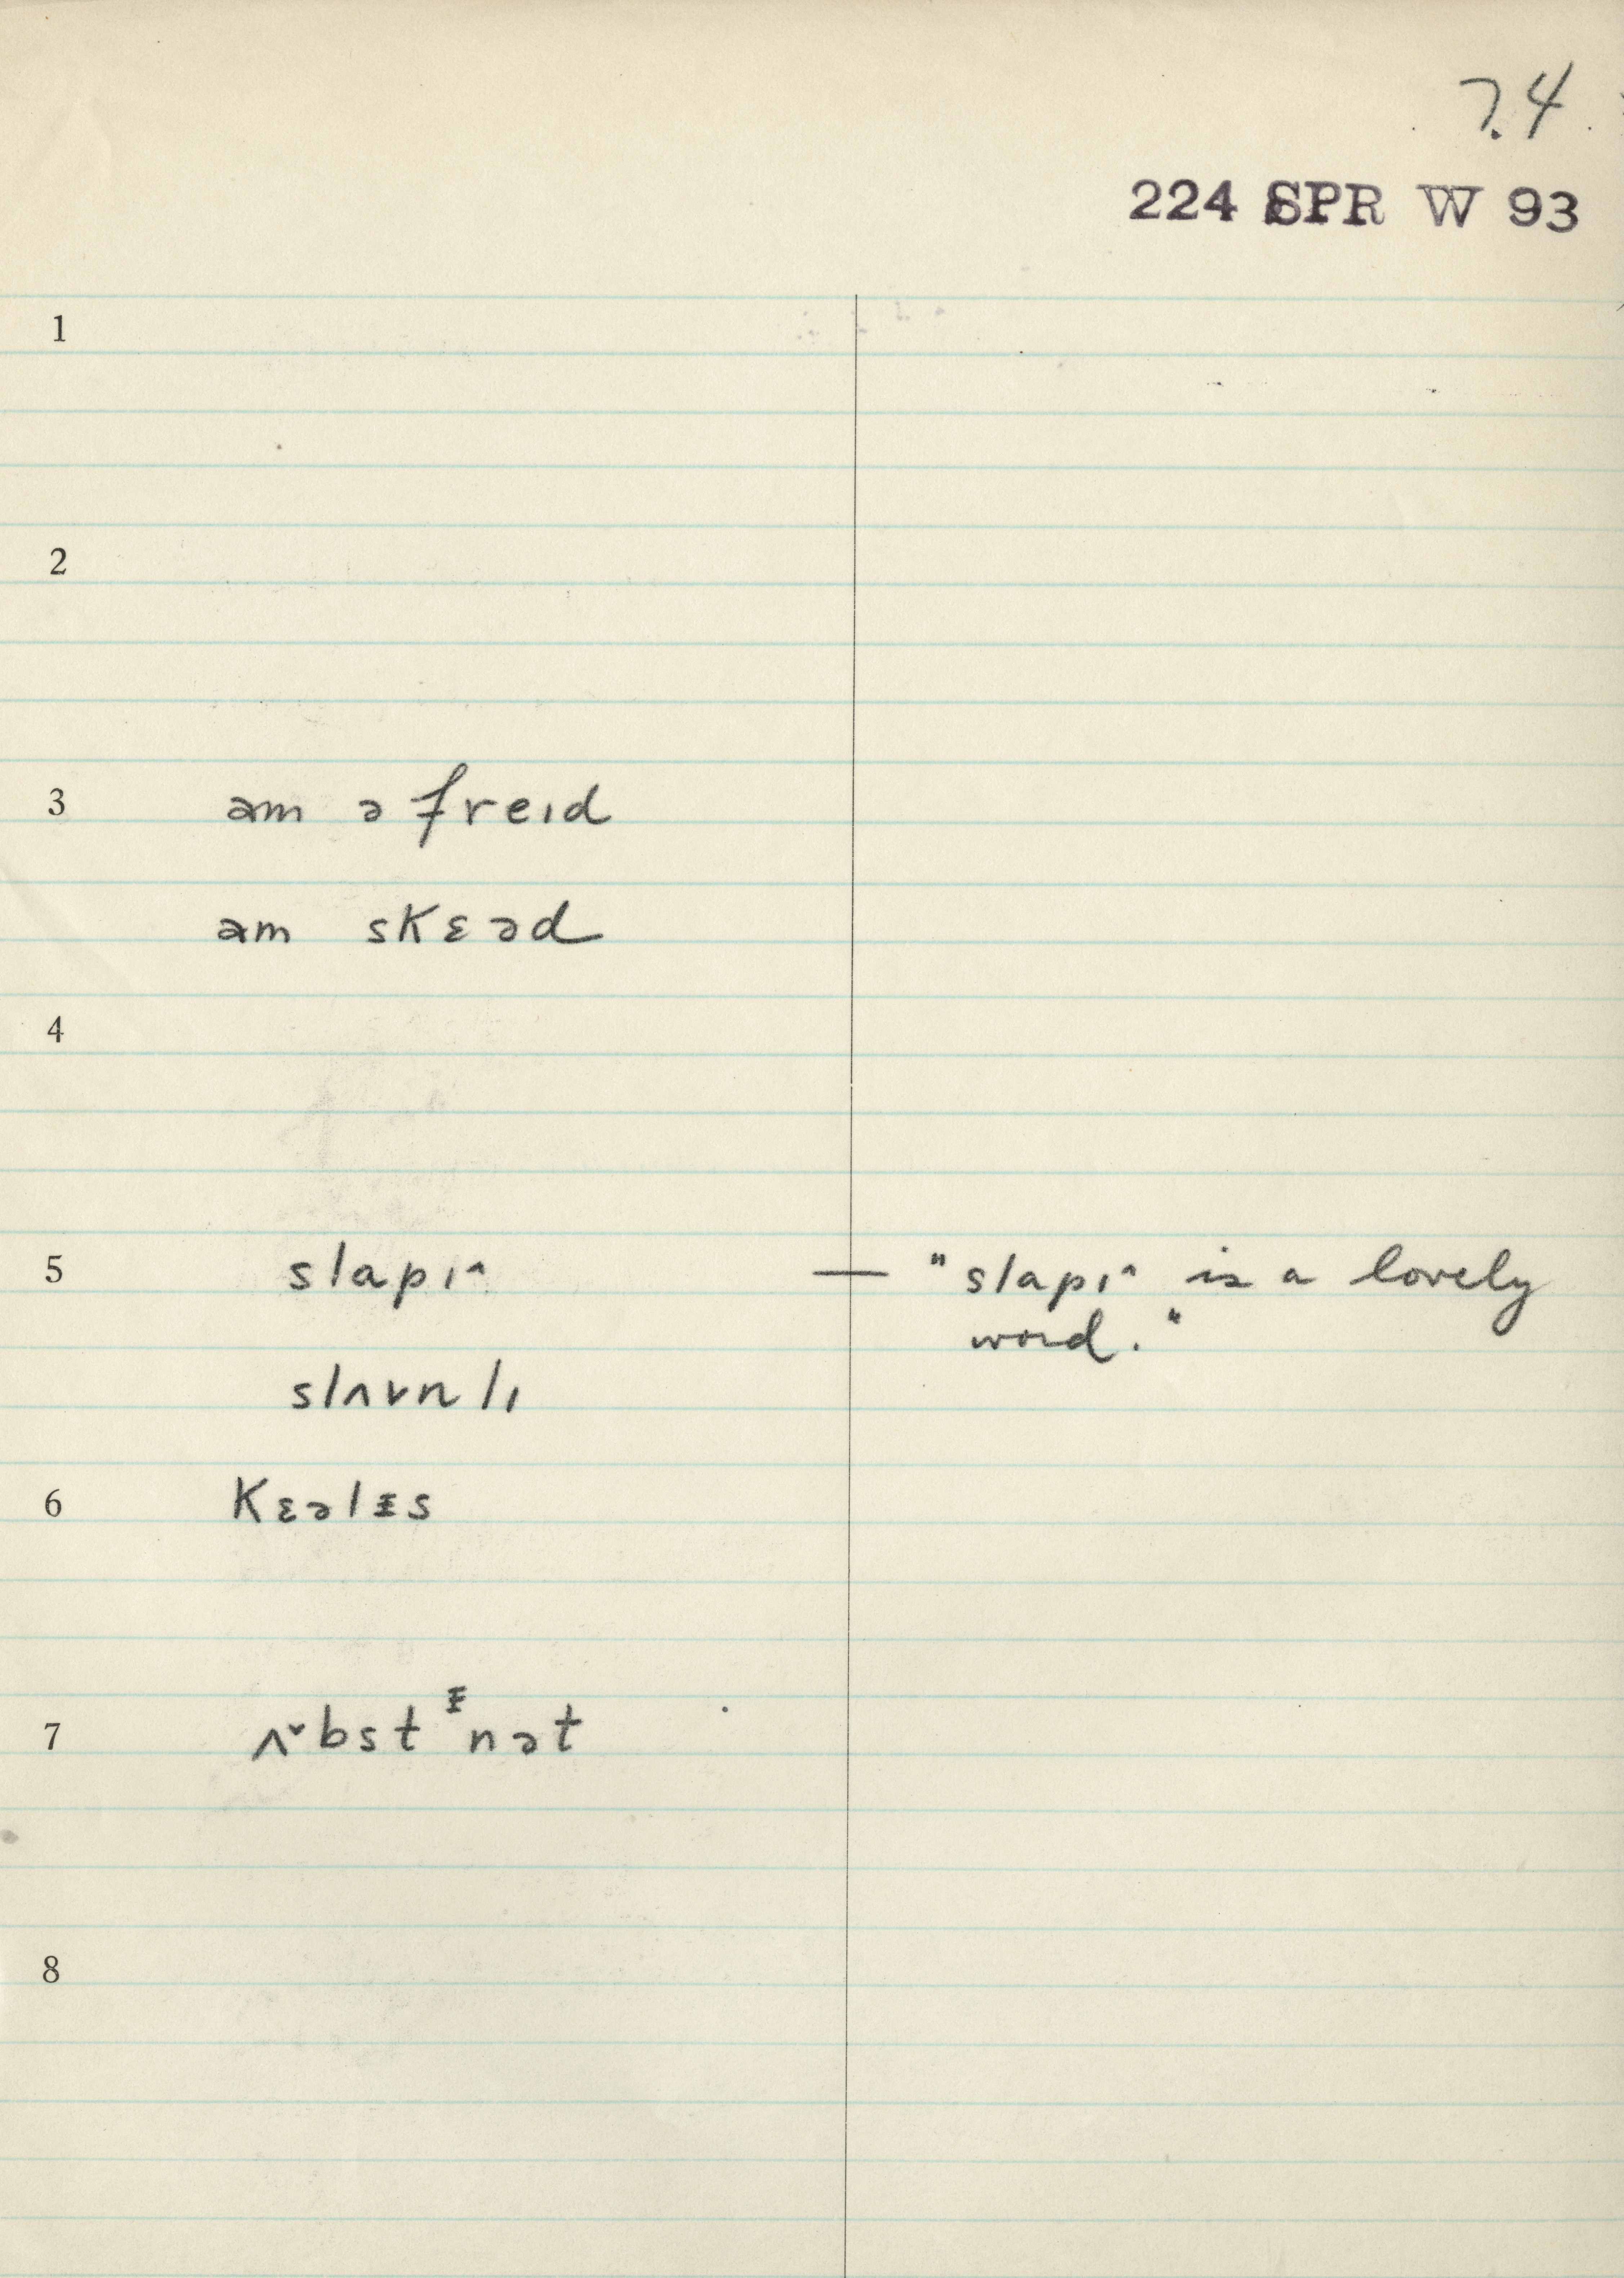 74
224 SPR W 93
1
2
3 am ə freɪd
am skɛəd
4
5 slapɪ^ — "slapɪ^ is a lovely
word."
slʌvnlɪ
6 kɛəlᵻs
7 ʌ˅bstᵻnət
8